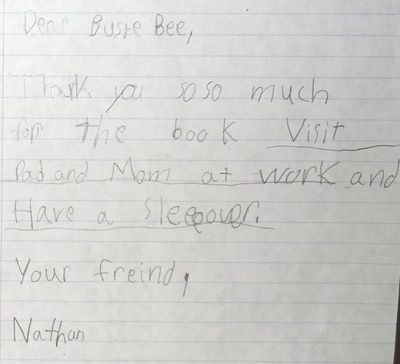 Dear Buste Bee,
Thank you so so much
for the book Visit
Dad and Mom at work and
Have a Sleepover.
Your freind,
Nathan